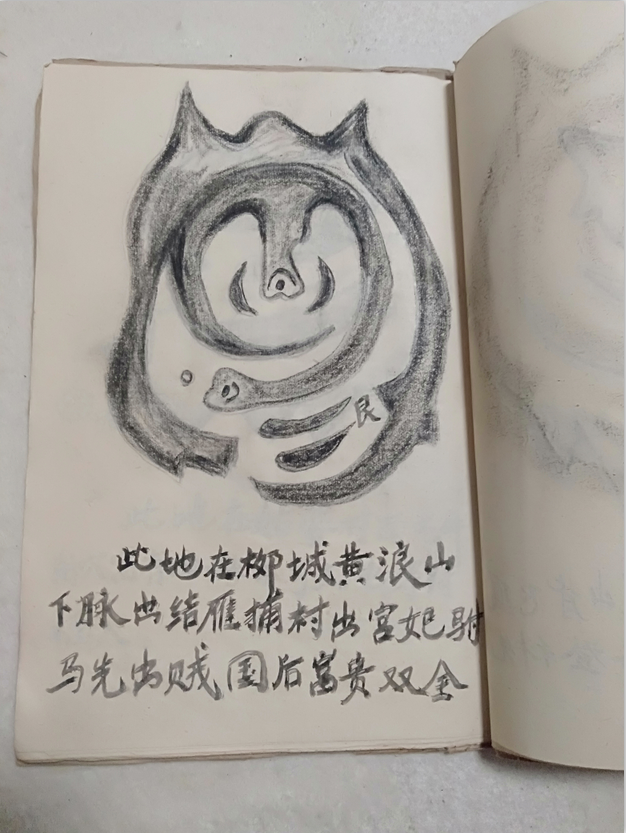 艮
此地在柳城黄浪山
下脉出结雁捕村出宫妃驸
马先出贼国后富贵双全